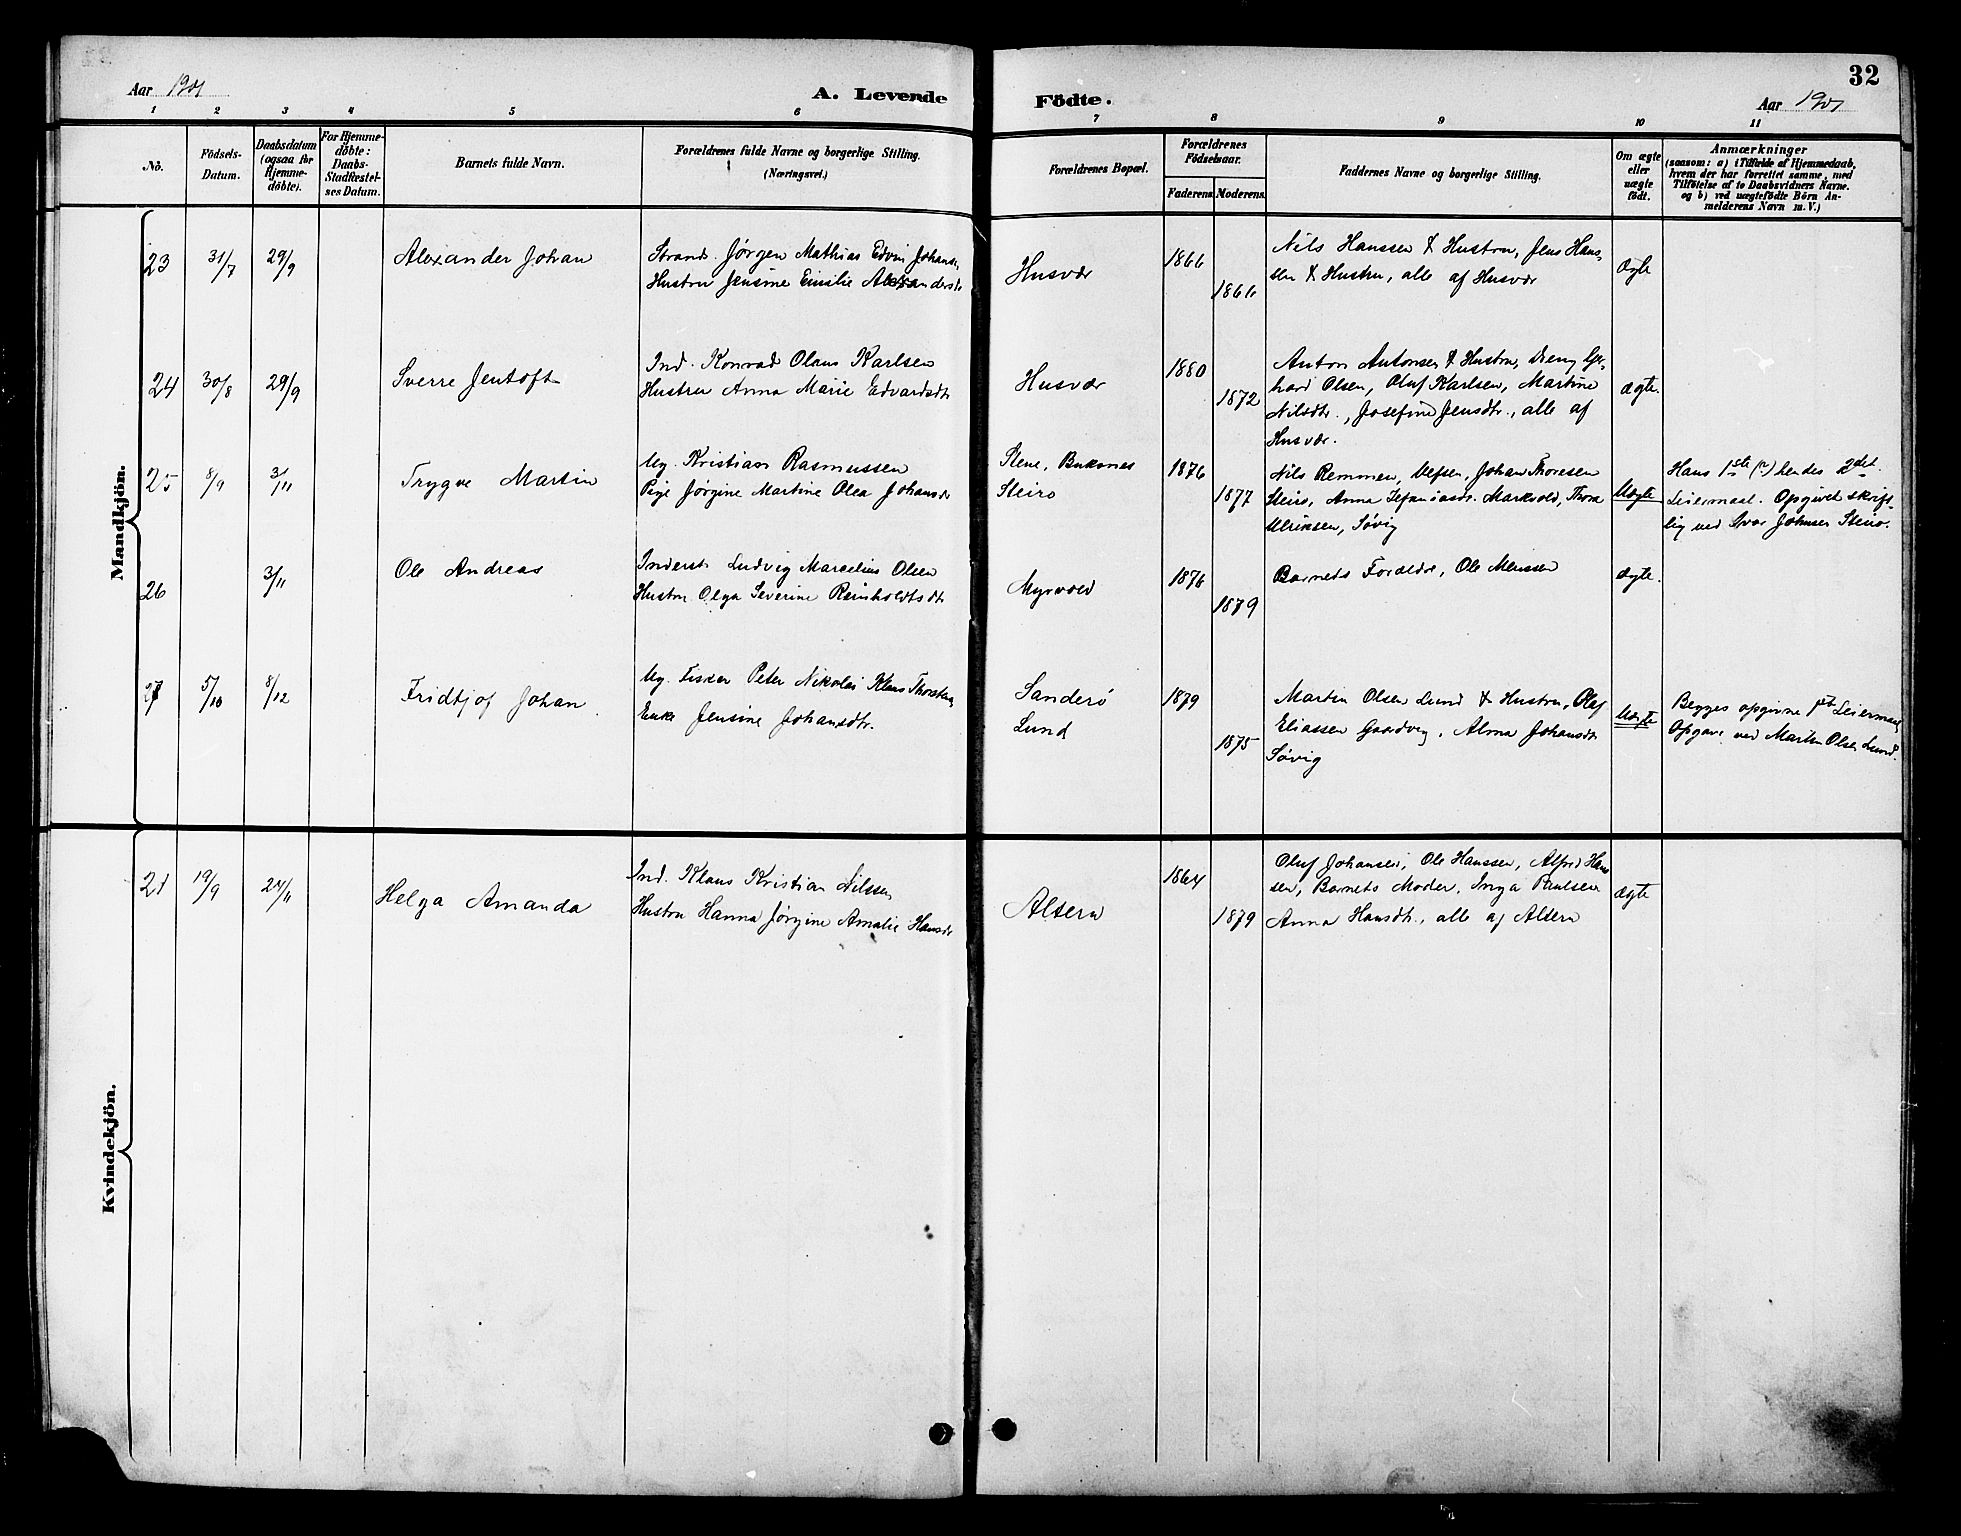 32
Aar 1901
A. Levende Födte.
Aar 1901
1 2 3 4 5 6 7 8 9 10 11
No.
Födsels-
Datum.
Daabsdatum
(ogsaa for
Hjemme-
döbte).
For Hjemme-
döbte:
Daabs-
Stadfæstel-
ses Datum.
Barnets fulde Navn.
Forældrenes fulde Navne og borgerlige Stilling.
(Næringsvei.)
Forældrenes Bopæl.
Forældrenes
Födselsaar.
Faderens. Moderens.
Faddernes Navne og borgerlige Stilling.
Om ægte
eller
uægte
födt.
Anmærkninger
(saasom: a) i Tilfælde af Hjemmedaab,
hvem der har forrettet samme, med
Tilföielse af to Daabsvidners Navne.
og b) ved uægtefödte Börn An-
melderens Navn m. V.)
Mandkjön.
23 31/7 29/9 Alexander Johan
Strands. Jørgen Mathias Edvin Johans.
Hustru Jensine Emilie Alexandersdr
Husvær
1866
1866
Nils Hanssen & Hustru, Jens Hans-
sen & Hustru, alle af Husvær
Ægte
24 30/8 29/9 Sverre Jentoft
Ind. Konrad Olaus Karlsen
Hustru Anna Marie Edvardsdtr
Husvær
1880
1872
Anton Antonsen & Hustru, Dieng Ger-
hard Olsen, Oluf Karlsen, Martine
Nilsdtr., Josefine Jensdtr., alle af
Husvær.
ægte.
25 8/9 3/11 Trygve Martin
Ug. Kristian Rasmussen
Pige Jørgine Martine Olea Johansdr
Stene, Buksnes
Steiro
1876
1877
Nils Remmen, Vefsen, Johan Thoresen
Steiro, Anna Stefaniasdr. Markvold, Thora
Ulriksen, Søvig
Uægte
Hans 1ste (?) hendes 2det
Leiermaal. Opgivet skrift-
lig ved Ivar Johnsen Steiro.
26 3/11 Ole Andreas
Inderst. Ludvig Marcelius Olsen
Hustru Olga Severine Reinholdtsdt
Myrvold
1876
1879
Barnets Forældre, Ole Monssen
ægte.
27 5/10 8/12 Fridtjof Johan
Ug. Fisker Peter Nikolai Klaus Thorstens
Enke Jensine Johansdtr.
Sanderø
Lund
1879
1875
Martin Olsen Lund & Hustru, Olaf
Eliassen Gaardveg, Alma Johansdt
Søvig
Uægte
Begges opgivne 1ste Leiermaal
Opgave ved Martin Olsen Lund.
Kvindekjön.
21 19/9 24/11 Helga Amanda
Ind. Klaus Kristian Nilssen
Hustru Hanna Jørgine Amalie Hansdr
Altern
1864
1879
Oluf Johansen, Ole Hanssen, Alfred Hans
sen, Barnets Moder, Inga Paulsen
Anna Hansdtr., alle af Altern
ægte